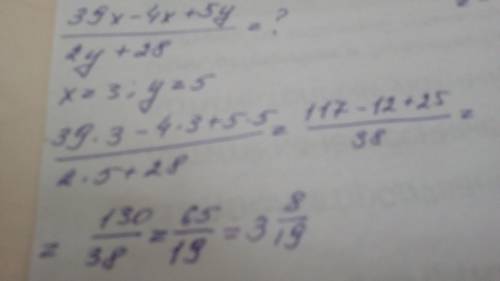 (39x-4x+5y)/(2y+28) = ?
x=3; y=5
(39·3-4·3+5·5)/(2·5+28) = (117-12+25)/38 =
= 130/38 = 65/19 = 3 8/19